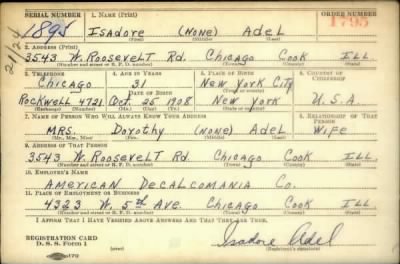 SERIAL NUMBER 1. NAME (Print) ORDER NUMBER
1895 ISADORE (NONE) ADEL 1795
(First) (Middle) (Last)
2. ADDRESS (Print)
3543 W. ROOSEVELT RD. CHICAGO COOK ILL.
(Number and street or R. F. D. number) (Town) (County) (State)
3. TELEPHONE 4. AGE IN YEARS 5. PLACE OF BIRTH 6. COUNTRY OF CITIZENSHIP
CHICAGO 31 NEW YORK CITY
DATE OF BIRTH (Town or county)
ROCKWELL 4721 OCT. 25 1908 NEW YORK U.S.A
(Exchange) (Number) (Mo.) (Day) (Yr.) (State or country)
7. NAME OF PERSON WHO WILL ALWAYS KNOW YOUR ADDRESS 8. RELATIONSHIP OF THAT PERSON
MRS. DOROTHY (NONE) ADEL WIFE
(Mr., Mrs., Miss) (First) (Middle) (Last)
9. ADDRESS OF THAT PERSON
3543 W. ROOSEVELT RD. CHICAGO COOK ILL.
(Number and street or R. F. D. number) (Town) (County) (State)
10. EMPLOYER'S NAME
AMERICAN DECALCOMANIA CO.
11. PLACE OF EMPLOYMENT OR BUSINESS
4323 W. 5TH AVE. CHICAGO COOK ILL.
(Number and street or R. F. D. number) (Town) (County) (State)
I AFFIRM THAT I HAVE VERIFIED ABOVE ANSWERS AND THAT THEY ARE TRUE.
REGISTRATION CARD
D. S. S. Form 1
Isadore Adel
(Registrant's signature)